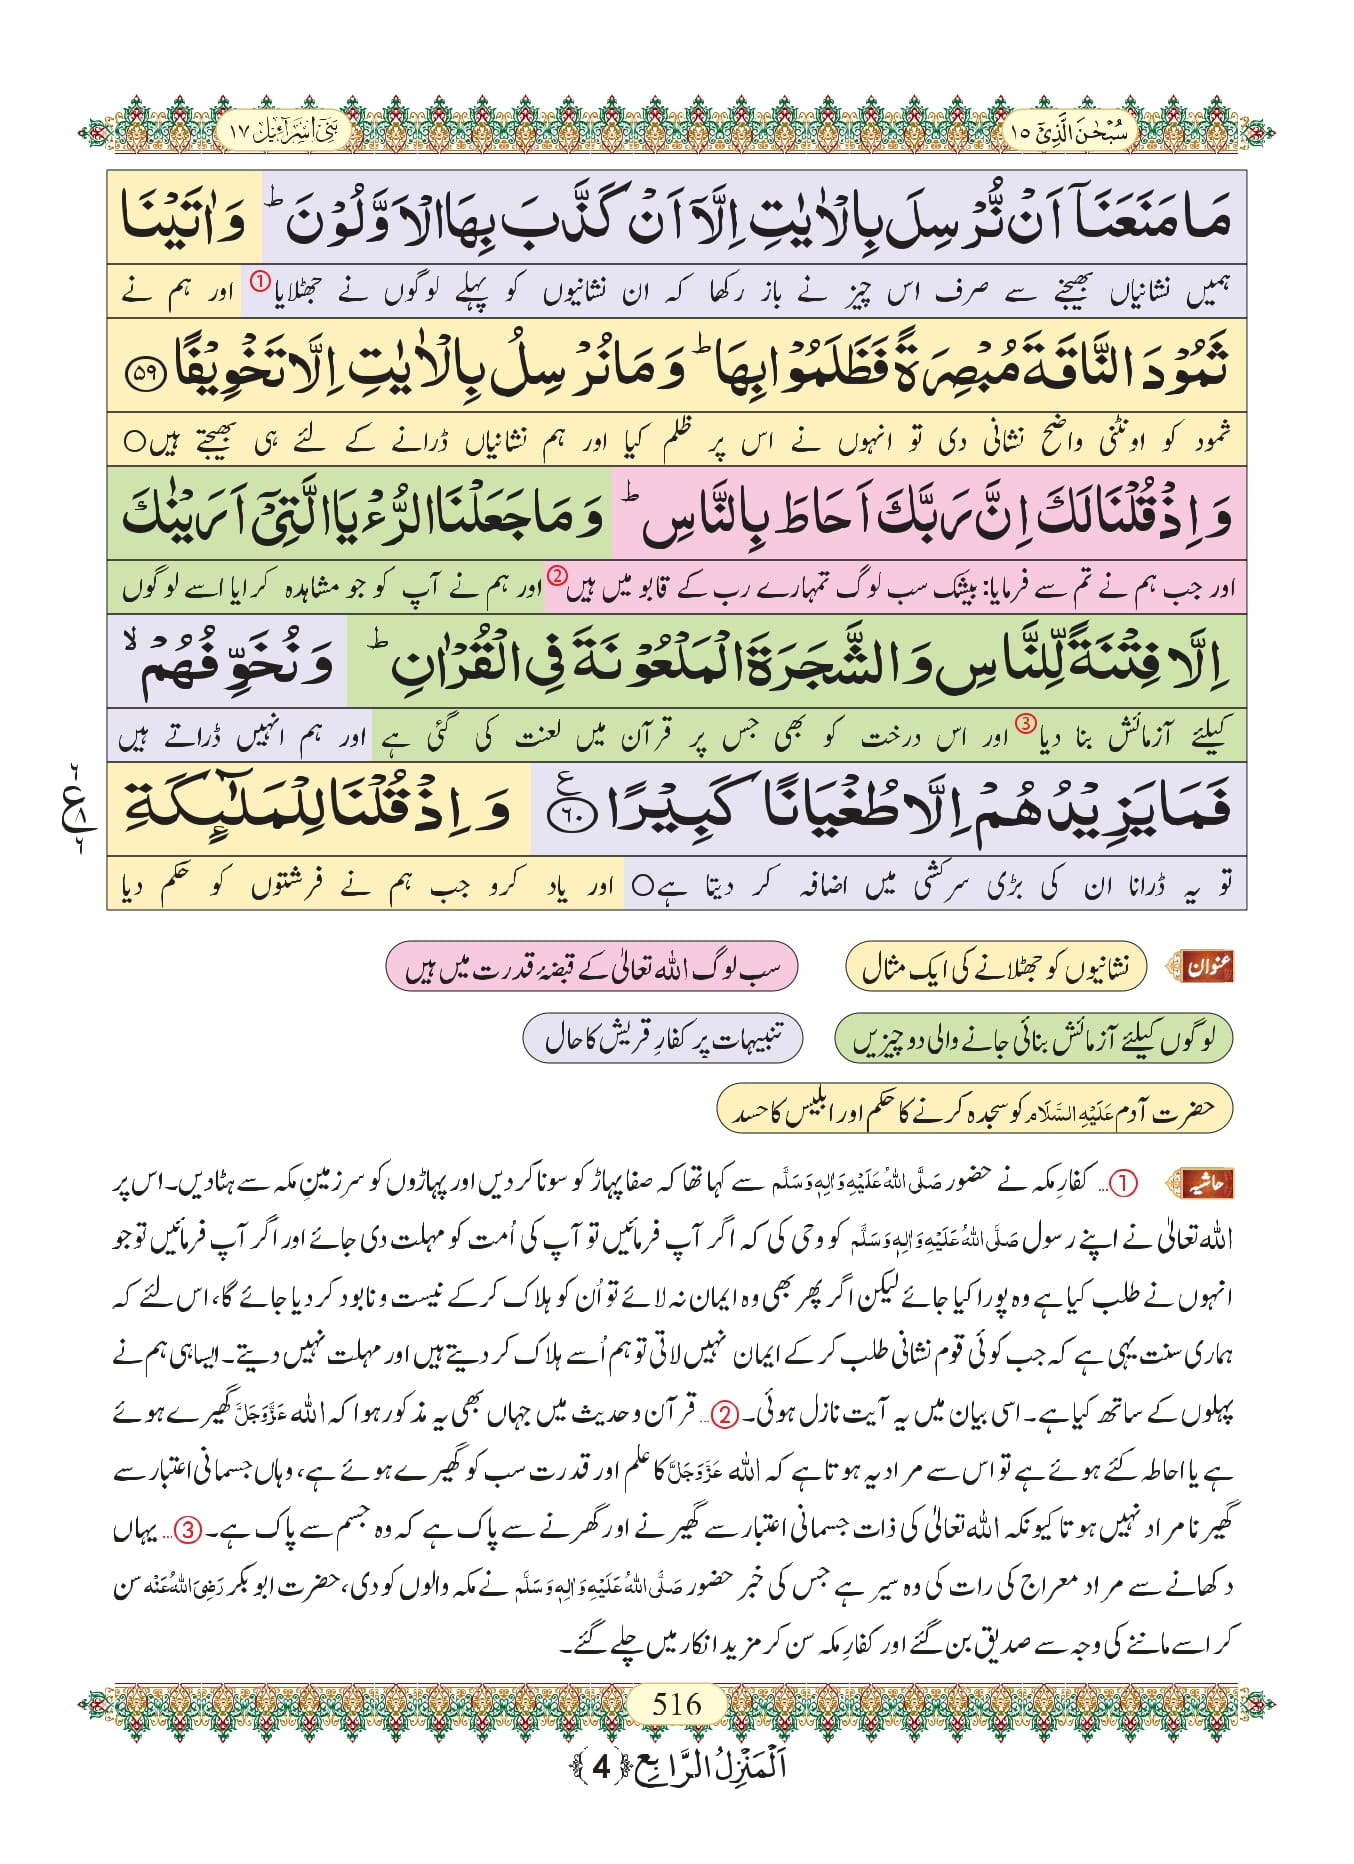 سُبْحٰنَ الَّذِیْۤ ۱۵
بَنِیْۤ اِسْرَآءِیْل ۱۷
مَا مَنَعَنَاۤ اَنْ نُّرْسِلَ بِالْاٰیٰتِ اِلَّاۤ اَنْ كَذَّبَ بِهَا الْاَوَّلُوْنَ ؕ وَ اٰتَیْنَا
ہمیں نشانیاں بھیجنے سے صرف اس چیز نے باز رکھا کہ ان نشانیوں کو پہلے لوگوں نے جھٹلایا① اور ہم نے
ثَمُوْدَ النَّاقَةَ مُبْصِرَةً فَظَلَمُوْا بِهَا ؕ وَ مَا نُرْسِلُ بِالْاٰیٰتِ اِلَّا تَخْوِیْفًا ﴿۵۹﴾
ثمود کو اونٹنی واضح نشانی دی تو انہوں نے اس پر ظلم کیا اور ہم نشانیاں ڈرانے کے لئے ہی بھیجتے ہیں○
وَ اِذْ قُلْنَا لَكَ اِنَّ رَبَّكَ اَحَاطَ بِالنَّاسِ ؕ وَ مَا جَعَلْنَا الرُّءْیَا الَّتِیْۤ اَرَیْنٰكَ
اور جب ہم نے تم سے فرمایا: بیشک سب لوگ تمہارے رب کے قابو میں ہیں② اور ہم نے آپ کو جو مشاہدہ کرایا اسے لوگوں
اِلَّا فِتْنَةً لِّلنَّاسِ وَ الشَّجَرَةَ الْمَلْعُوْنَةَ فِی الْقُرْاٰنِ ؕ وَ نُخَوِّفُهُمْ ۙ
کیلئے آزمائش بنا دیا③ اور اس درخت کو بھی جس پر قرآن میں لعنت کی گئی ہے اور ہم انہیں ڈراتے ہیں
فَمَا یَزِیْدُهُمْ اِلَّا طُغْیَانًا كَبِیْرًا ﴿۶۰﴾ ع وَ اِذْ قُلْنَا لِلْمَلٰٓىٕكَةِ
۶ ع ۸ ۶
تو یہ ڈرانا ان کی بڑی سرکشی میں اضافہ کر دیتا ہے○ اور یاد کرو جب ہم نے فرشتوں کو حکم دیا
عنوان نشانیوں کو جھٹلانے کی ایک مثال سب لوگ اللہ تعالیٰ کے قبضۂ قدرت میں ہیں
لوگوں کیلئے آزمائش بنائی جانے والی دو چیزیں تنبیہات پر کفارِ قریش کا حال
حضرت آدم عَلَیْهِ السَّلَام کو سجدہ کرنے کا حکم اور ابلیس کا حسد
حاشیہ ①... کفارِ مکہ نے حضور صَلَّی اللهُ عَلَیْهِ وَاٰلِهٖ وَسَلَّم سے کہا تھا کہ صفا پہاڑ کو سونا کر دیں اور پہاڑوں کو سرزمینِ مکہ سے ہٹا دیں۔ اس پر
اللہ تعالیٰ نے اپنے رسول صَلَّی اللهُ عَلَیْهِ وَاٰلِهٖ وَسَلَّم کو وحی کی کہ اگر آپ فرمائیں تو آپ کی اُمت کو مہلت دی جائے اور اگر آپ فرمائیں تو جو
انہوں نے طلب کیا ہے وہ پورا کیا جائے لیکن اگر پھر بھی وہ ایمان نہ لائے تو اُن کو ہلاک کرکے نیست و نابود کر دیا جائے گا، اس لئے کہ
ہماری سنت یہی ہے کہ جب کوئی قوم نشانی طلب کرکے ایمان نہیں لاتی تو ہم اُسے ہلاک کر دیتے ہیں اور مہلت نہیں دیتے۔ ایسا ہی ہم نے
پہلوں کے ساتھ کیا ہے۔ اسی بیان میں یہ آیت نازل ہوئی۔ ②... قرآن و حدیث میں جہاں بھی یہ مذکور ہوا کہ اللہ عَزَّوَجَلَّ گھیرے ہوئے
ہے یا احاطہ کئے ہوئے ہے تو اس سے مراد یہ ہوتا ہے کہ اللہ عَزَّوَجَلَّ کا علم اور قدرت سب کو گھیرے ہوئے ہے، وہاں جسمانی اعتبار سے
گھیرنا مراد نہیں ہوتا کیونکہ اللہ تعالیٰ کی ذات جسمانی اعتبار سے گھیرنے اور گھرنے سے پاک ہے کہ وہ جسم سے پاک ہے۔ ③... یہاں
دکھانے سے مراد معراج کی رات کی وہ سیر ہے جس کی خبر حضور صَلَّی اللهُ عَلَیْهِ وَاٰلِهٖ وَسَلَّم نے مکہ والوں کو دی، حضرت ابو بکر رَضِیَ اللهُ عَنْه سن
کر اسے ماننے کی وجہ سے صدیق بن گئے اور کفارِ مکہ سن کر مزید انکار میں چلے گئے۔
516
اَلْمَنْزِلُ الرَّابِع ﴿4﴾